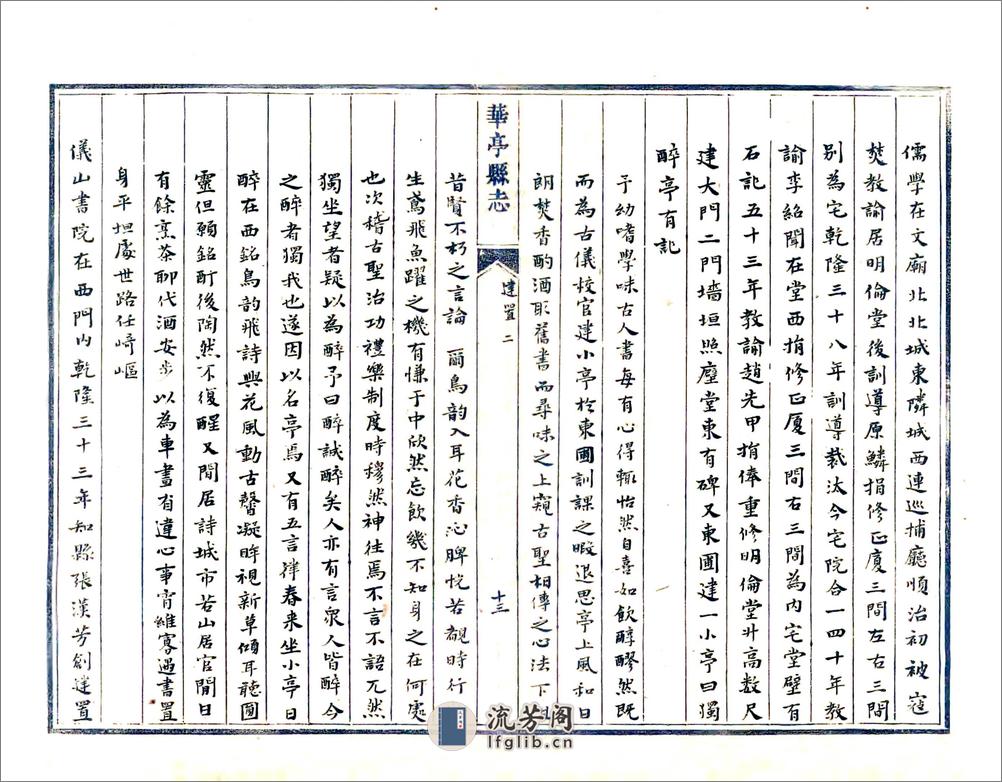 儒學在文廟北北城東隣城西連巡捕廳順治初被寇
焚教諭居明倫堂後訓導原鱗捐修正廈三間左右三間
別為宅乾隆三十八年訓導裁汰今宅院合一四十年教
諭李紹聞在堂西捐修正廈三間右三間為內宅堂壁有
石記五十三年教諭趙先甲捐俸重修明倫堂廾高數尺
建大門二門墻垣照壁堂東有碑又東圃建一小亭曰獨
醉亭有記
予幼嗜學味古人書每有心得輒怡然自喜如飲醇醪然既
而為古儀校官建小亭於東圃訓課之暇退思亭上風和日
朗焚香酌酒取舊書而尋味之上窺古聖相傳之心法下
華亭縣志
建置二
十三
昔賢不朽之言論爾鳥韵入耳花香沁脾恍若覩時行
生鳶飛魚躍之機有慊于中欣然忘飲幾不知身之在何處
也次稽古聖治功禮樂制度時穆然神往焉不言不語兀然
獨坐望者疑以為醉予曰醉誠醉矣人亦有言衆人皆醉今
之醉者獨我也遂因以名亭焉又有五言律春来坐小亭日
醉在西銘鳥韵飛詩興花風動古馨凝眸視新草傾耳聽圓
靈但願銘酊後陶然不復醒又閒居詩城市若山居官閒日
有餘烹茶聊代酒安步以為車晝有違心事宵維寡過書置
身平坦處世路任崎嶇
儀山書院在西門內乾隆三十三年知縣張漢芳創建置
流芳阁
lfglib.cn